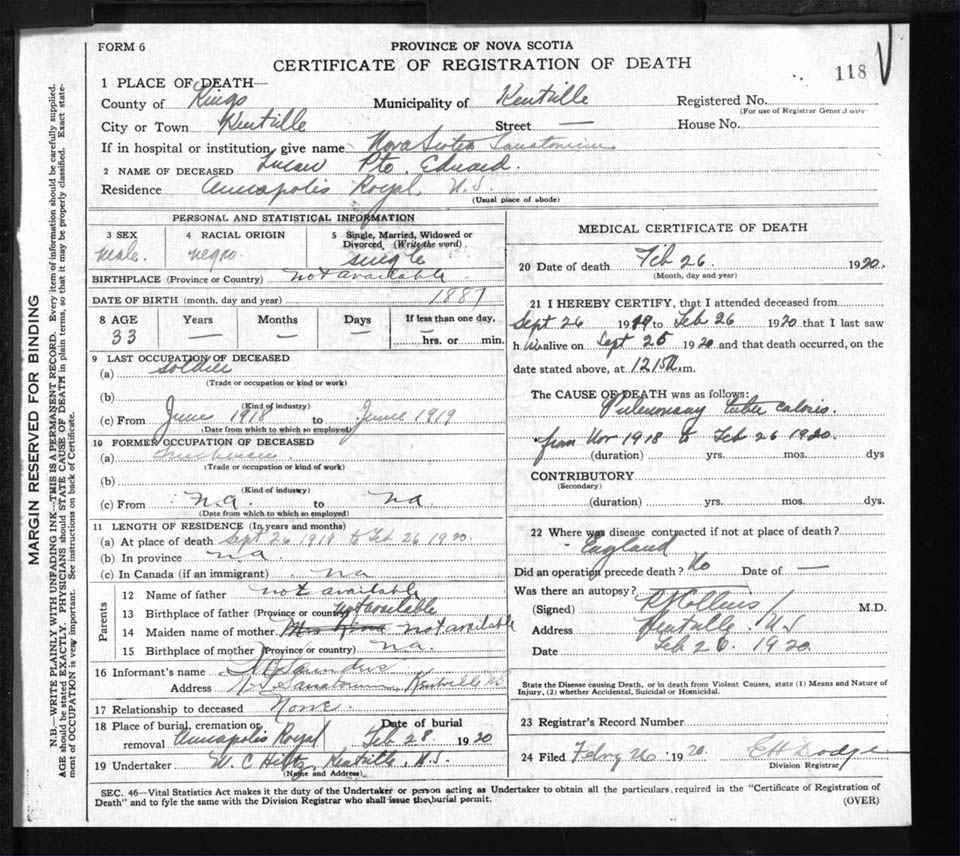 FORM 6
PROVINCE OF NOVA SCOTIA
CERTIFICATE OF REGISTRATION OF DEATH
118
1 PLACE OF DEATH—
County of Kings Municipality of Kentville Registered No.
(For use of Registrar General only
City or Town Kentville Street — House No.
If in hospital or institution, give name Nova Scotia Sanatorium
2 NAME OF DECEASED Lucas Pte. Edward.
Residence Annapolis Royal, N.S.
(Usual place of abode)
PERSONAL AND STATISTICAL INFORMATION
3 SEX male.
4 RACIAL ORIGIN negro.
5 Single, Married, Widowed or Divorced. (Write the word). single
BIRTHPLACE (Province or Country) not available
DATE OF BIRTH (month, day and year) 1887
8 AGE Years Months Days If less than one day,
33 — — — — hrs. or min.
9 LAST OCCUPATION OF DECEASED
(a) Soldier
(Trade or occupation or kind or work)
(b)
(Kind of industry)
(c) From June 1918 to June 1919
(Date from which to which so employed)
10 FORMER OCCUPATION OF DECEASED
(a)
(Trade or occupation or kind of work)
(b)
(Kind of industry)
(c) From n.a. to na
(Date from which to which so employed)
11 LENGTH OF RESIDENCE (In years and months)
(a) At place of death Sept 26 1919 to Feb 26 1920.
(b) In province na
(c) In Canada (if an immigrant) na
Parents
12 Name of father not available
13 Birthplace of father (Province or country) not available
14 Maiden name of mother not available
15 Birthplace of mother (Province or country) na.
16 Informant's name Saunders
Address N.S. Sanatorium, Kentville NS
17 Relationship to deceased None.
18 Place of burial, cremation or removal Annapolis Royal Date of burial Feb 28 1920
19 Undertaker W. C. Hiltz, Kentville, N.S.
(Name and Address)
MEDICAL CERTIFICATE OF DEATH
20 Date of death Feb 26 1920.
(Month, day and year)
21 I HEREBY CERTIFY, that I attended deceased from
Sept 26 1919 to Feb 26 1920 that I last saw
h im alive on Sept 25 1920 and that death occurred, on the
date stated above, at 12 15 m.
The CAUSE OF DEATH was as follows:
Pulmonary tuberculosis.
from Nov 1918 to Feb 26 1920.
(duration) yrs. mos. dys
CONTRIBUTORY
(Secondary)
(duration) yrs. mos. dys.
22 Where was disease contracted if not at place of death?
England
Did an operation precede death? No Date of —
Was there an autopsy?
(Signed) Collins M.D.
Address Kentville. N.S
Date Feb 26 1920.
State the Disease causing Death, or in death from Violent Causes, state (1) Means and Nature of
Injury, (2) whether Accidental, Suicidal or Homicidal.
23 Registrar's Record Number
24 Filed Febry 26 1920. E H Dodge
Division Registrar
SEC. 46—Vital Statistics Act makes it the duty of the Undertaker or person acting as Undertaker to obtain all the particulars required in the "Certificate of Registration of
Death" and to fyle the same with the Division Registrar who shall issue the burial permit. (OVER)
MARGIN RESERVED FOR BINDING
N.B.—WRITE PLAINLY WITH UNFADING INK—THIS IS A PERMANENT RECORD. Every item of information should be carefully supplied.
AGE should be stated EXACTLY. PHYSICIANS should STATE CAUSE OF DEATH in plain terms, so that it may be properly classified. Exact state-
ment of OCCUPATION is very important. See instructions on back of Certificate.